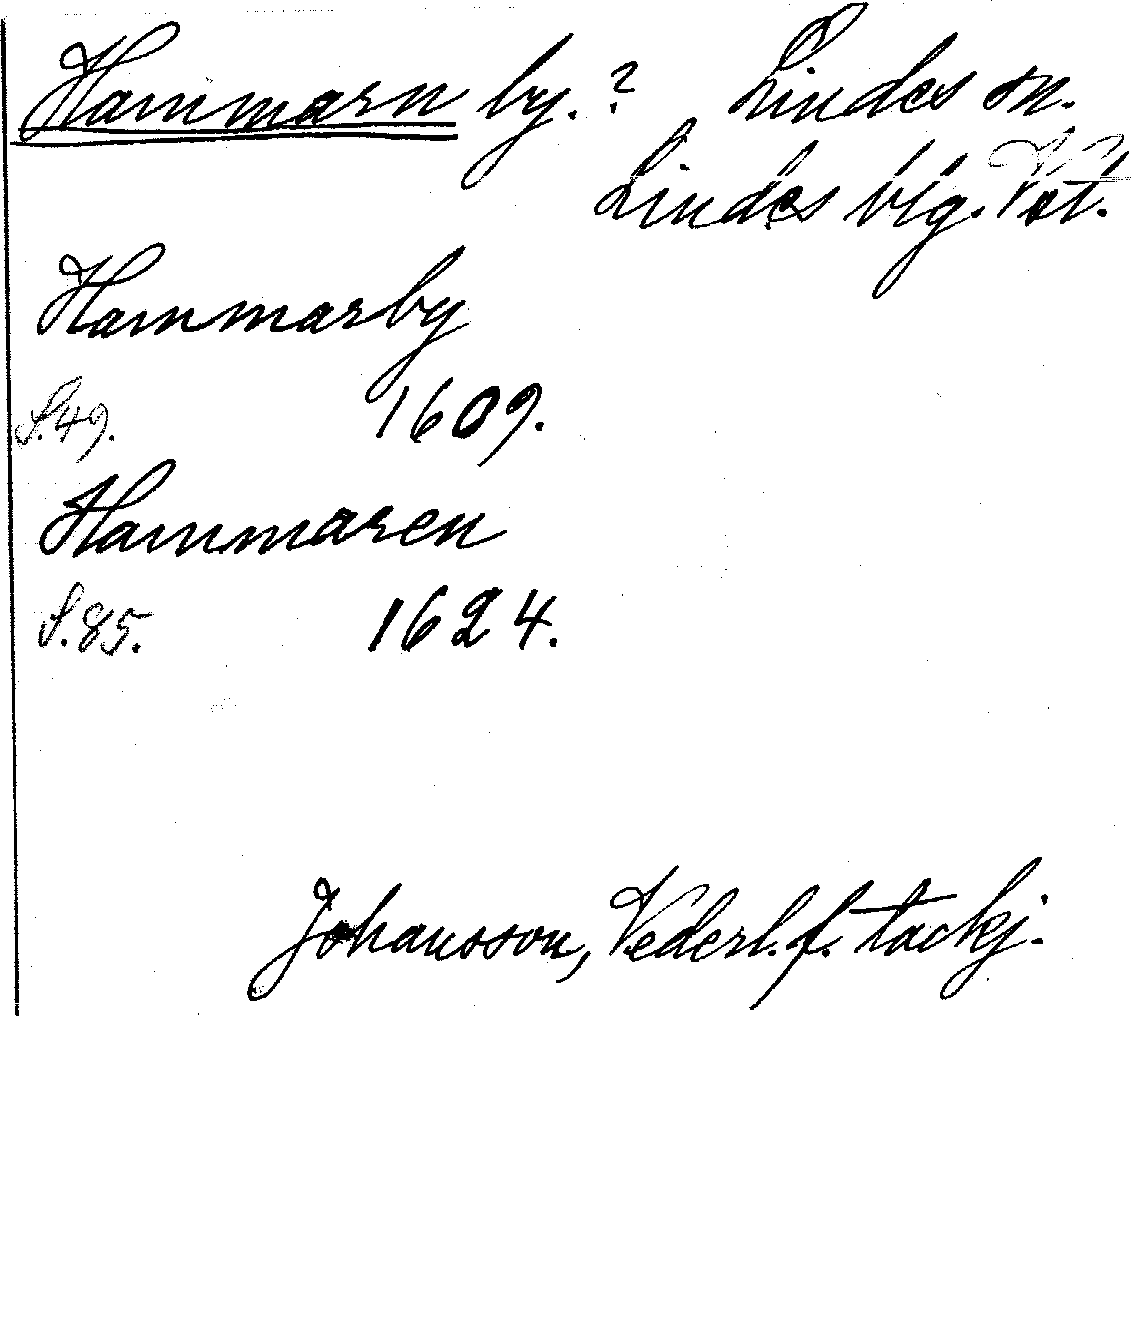 Hammarn by. ? Lindes sn.
Lindes blg. Vstl.
Hammarby
S. 49. 1609.
Hammaren
S. 85. 1624.
Johansson, Vederl. f. tackj.